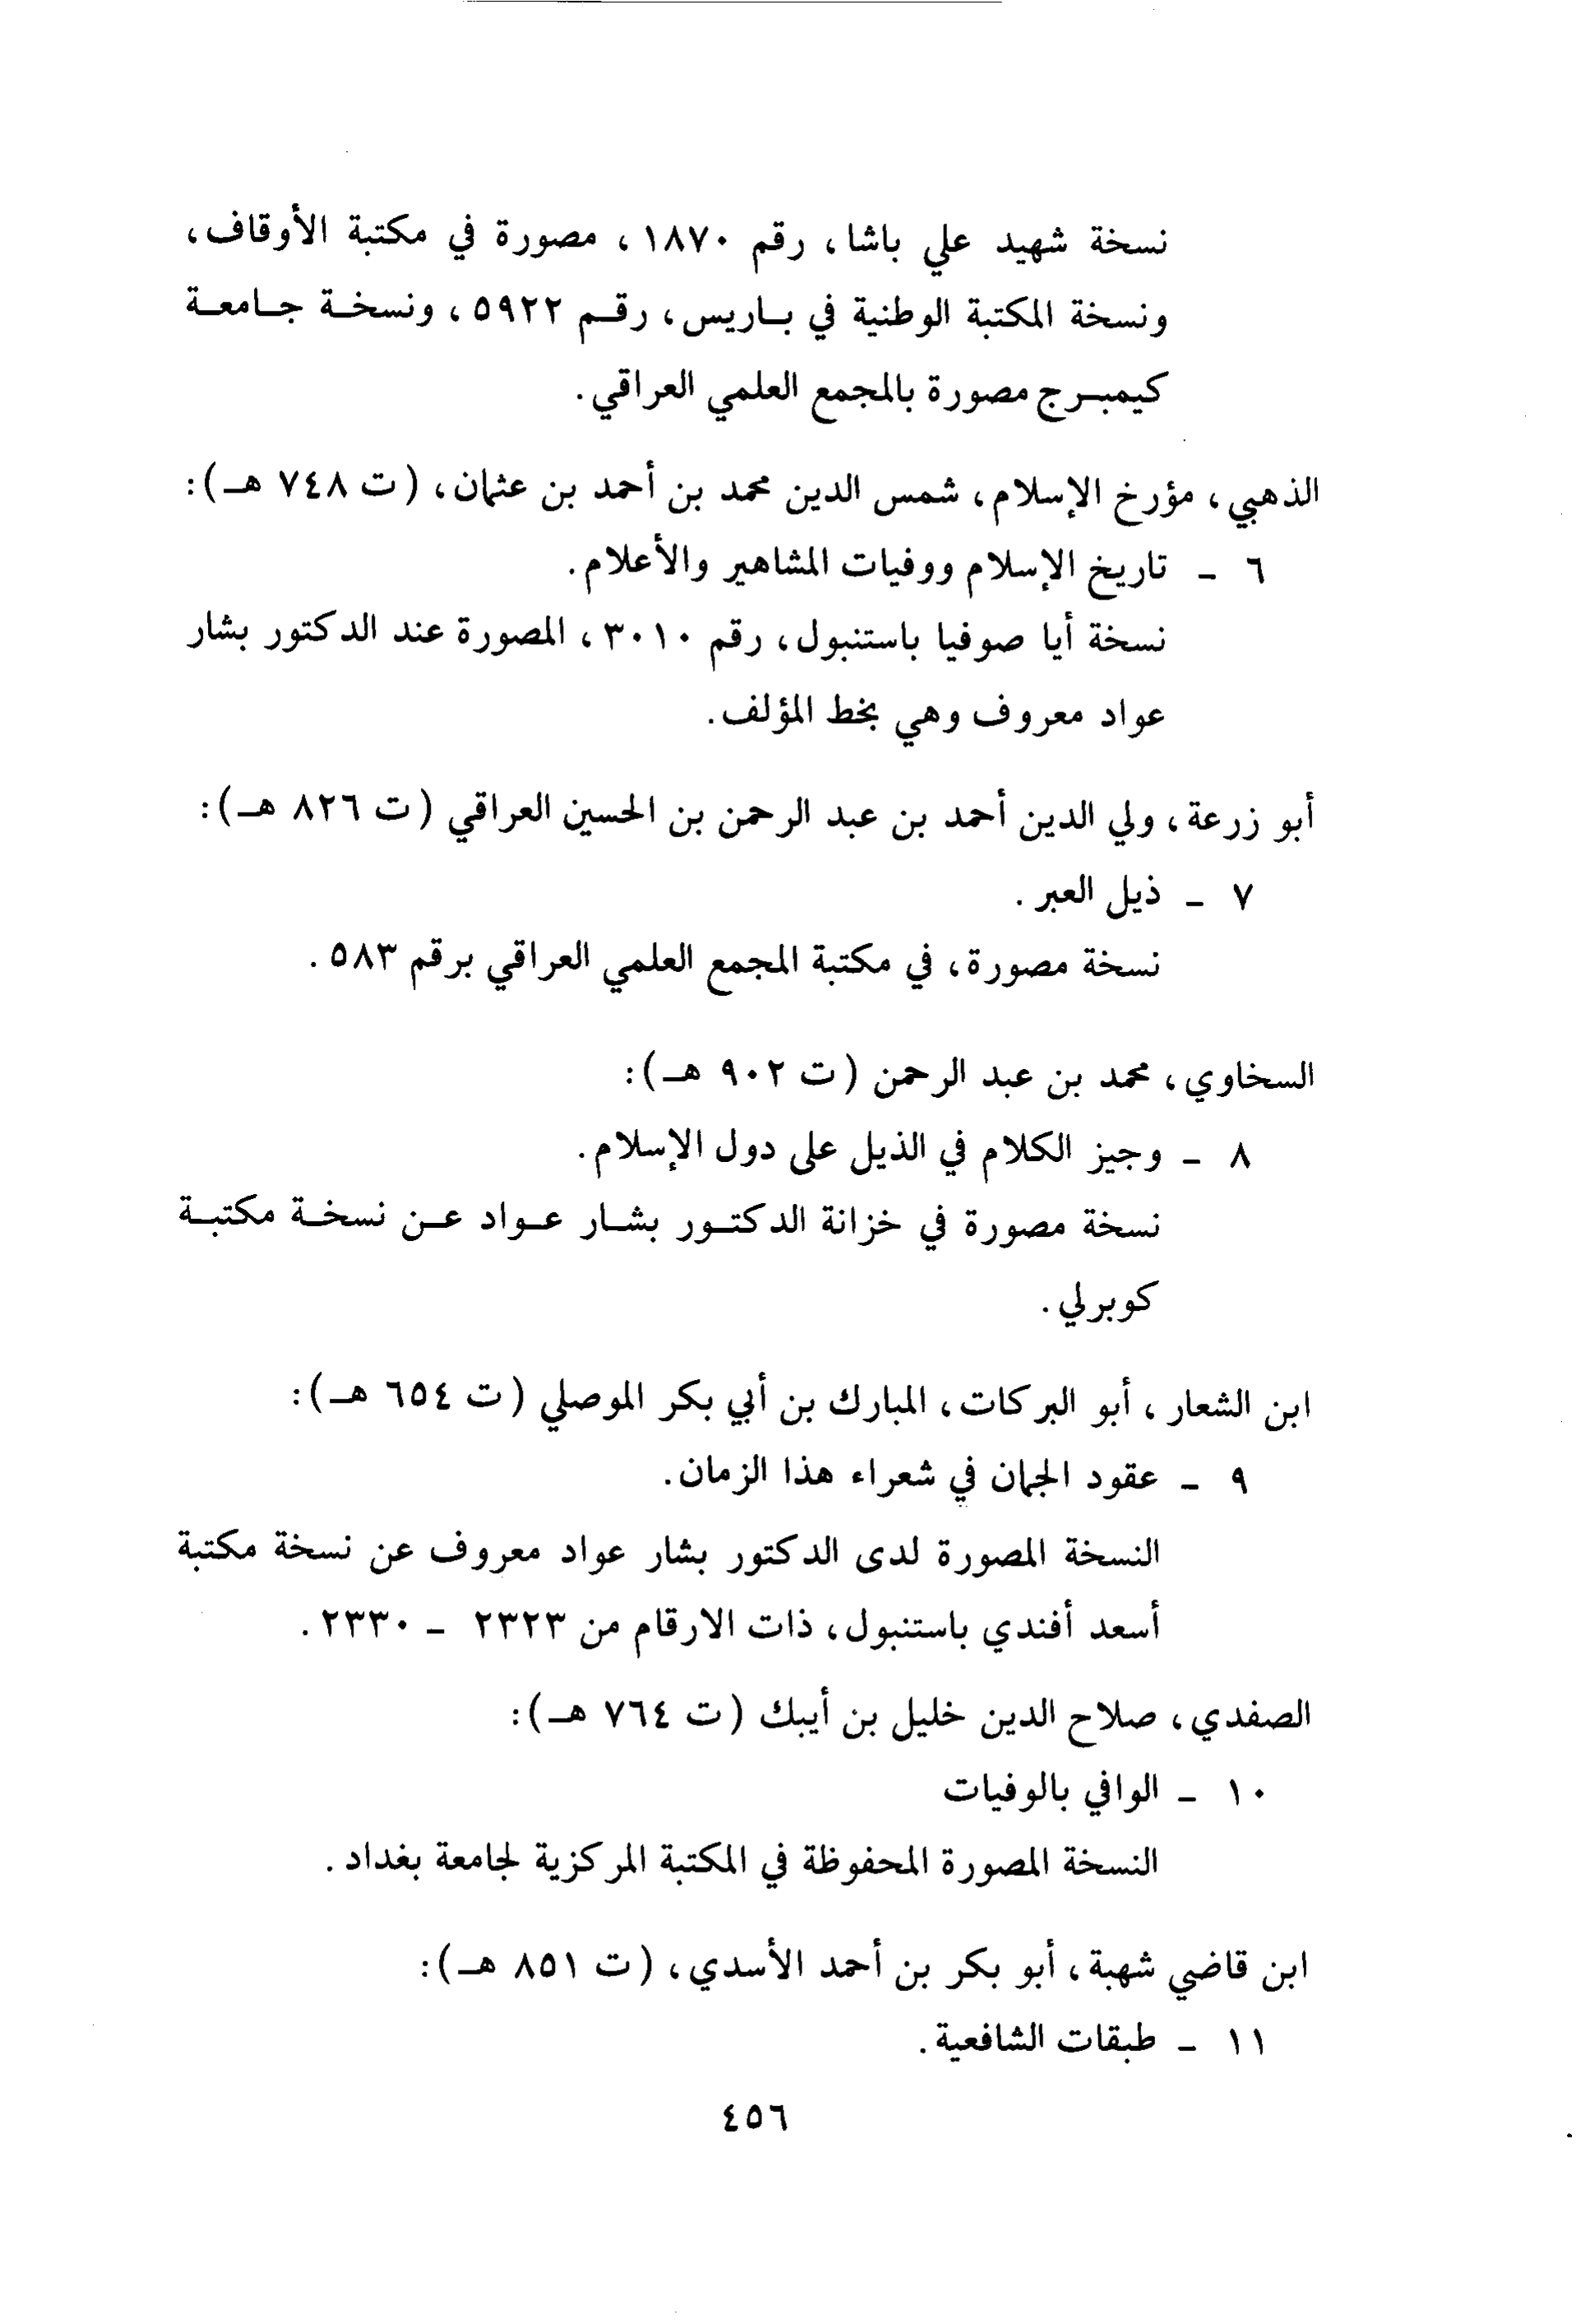 نسخة شهيد علي باشا، رقم ١٨٧٠، مصورة في مكتبة الأوقاف،
ونسخة المكتبة الوطنية في باريس، رقم ٥٩٢٢، ونسخة جامعة
كيمبرج مصورة بالمجمع العلمي العراقي.
الذهبي، مؤرخ الإسلام، شمس الدين محمد بن أحمد بن عثمان، (ت ٧٤٨ هـ):
٦ - تاريخ الإسلام ووفيات المشاهير والأعلام.
نسخة أيا صوفيا باستنبول، رقم ٣٠١٠، المصورة عند الدكتور بشار
عواد معروف وهي بخط المؤلف.
أبو زرعة، ولي الدين أحمد بن عبد الرحمن بن الحسين العراقي (ت ٨٢٦ هـ):
٧ - ذيل العبر.
نسخة مصورة، في مكتبة المجمع العلمي العراقي برقم ٥٨٣.
السخاوي، محمد بن عبد الرحمن (ت ٩٠٢ هـ):
٨ - وجيز الكلام في الذيل على دول الإسلام.
نسخة مصورة في خزانة الدكتور بشار عواد عن نسخة مكتبة
كوبرلي.
ابن الشعار، أبو البركات، المبارك بن أبي بكر الموصلي (ت ٦٥٤ هـ):
٩ - عقود الجمان في شعراء هذا الزمان.
النسخة المصورة لدى الدكتور بشار عواد معروف عن نسخة مكتبة
أسعد أفندي باستنبول، ذات الارقام من ٢٣٢٣ - ٢٣٣٠.
الصفدي، صلاح الدين خليل بن أيبك (ت ٧٦٤ هـ):
١٠ - الوافي بالوفيات
النسخة المصورة المحفوظة في المكتبة المركزية لجامعة بغداد.
ابن قاضي شهبة، أبو بكر بن أحمد الأسدي، (ت ٨٥١ هـ):
١١ - طبقات الشافعية.
٤٥٦